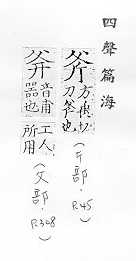 四聲篇海
斧 方切
刀斧也
(斤部, P.45)
音甫
噐也
工人
所用
(父部, P.308)